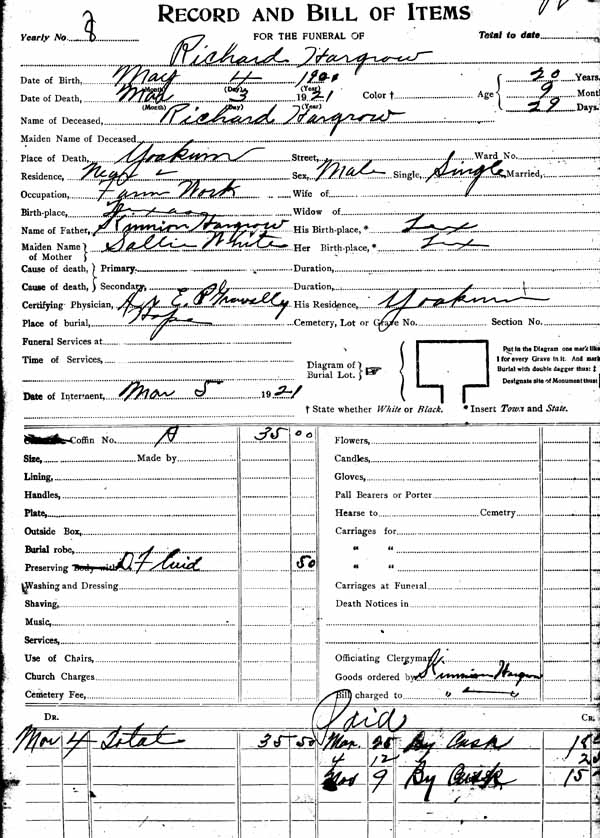 RECORD AND BILL OF ITEMS
Yearly No. 8 FOR THE FUNERAL OF Total to date
Richard Hargrow
Date of Birth, May 4 1900 20 Years.
(Month) (Day) (Year)
Date of Death, Mar 3 1921 Color † Age 9 Month
(Month) (Day) (Year) 29 Days.
Name of Deceased, Richard Hargrow
Maiden Name of Deceased,
Place of Death, Yoakum Street, Ward No.
Residence, Sex, Male Single, Single Married,
Occupation, Farm Work Wife of
Birth-place, Texas Widow of
Name of Father, Kinnion Hargrow His Birth-place, * Tex
Maiden Name of Mother Sallie White Her Birth-place, * Tex
Cause of death, Primary. Duration,
Cause of death, Secondary, Duration,
Certifying Physician, E. P. His Residence, Yoakum
Place of burial, Hope Cemetery, Lot or Grave No. Section No.
Funeral Services at
Time of Services, Diagram of Burial Lot.
Put in the Diagram one mark like
I for every Grave in it. And mark
Burial with double dagger thus: ‡
Designate site of Monument thus:
Date of Interment, Mar 5 1921
† State whether White or Black. * Insert Town and State.
Coffin No. A 35 00 Flowers,
Size, Made by Candles,
Lining, Gloves,
Handles, Pall Bearers or Porter
Plate, Hearse to Cemetry
Outside Box, Carriages for
Burial robe, " "
Preserving Body with D. Fluid 50 " "
Washing and Dressing Carriages at Funeral
Shaving, Death Notices in
Music,
Services,
Use of Chairs, Officiating Clergyman
Church Charges Goods ordered by Kinnion Hargrow
Cemetery Fee, Bill charged to " "
DR. Paid CR.
Mar 4 Total 35 50 Mar. 25 By Cash
4 12
Nov 9 By Cash 15